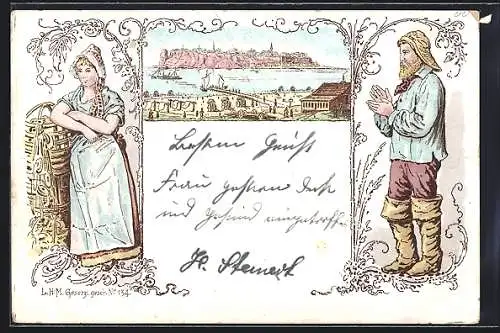 Besten Gruß
Frau gestern
und gesund eingetroffen
H. Steinert
L.H.M. Gesetz. gesch. Nº 134.